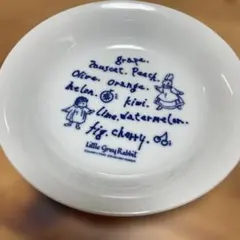 grape.
Pauscat. Peach.
Olive. orange.
melon.
kiwi.
lime. watermelon.
fig. cherry.
Little Grey Rabbit